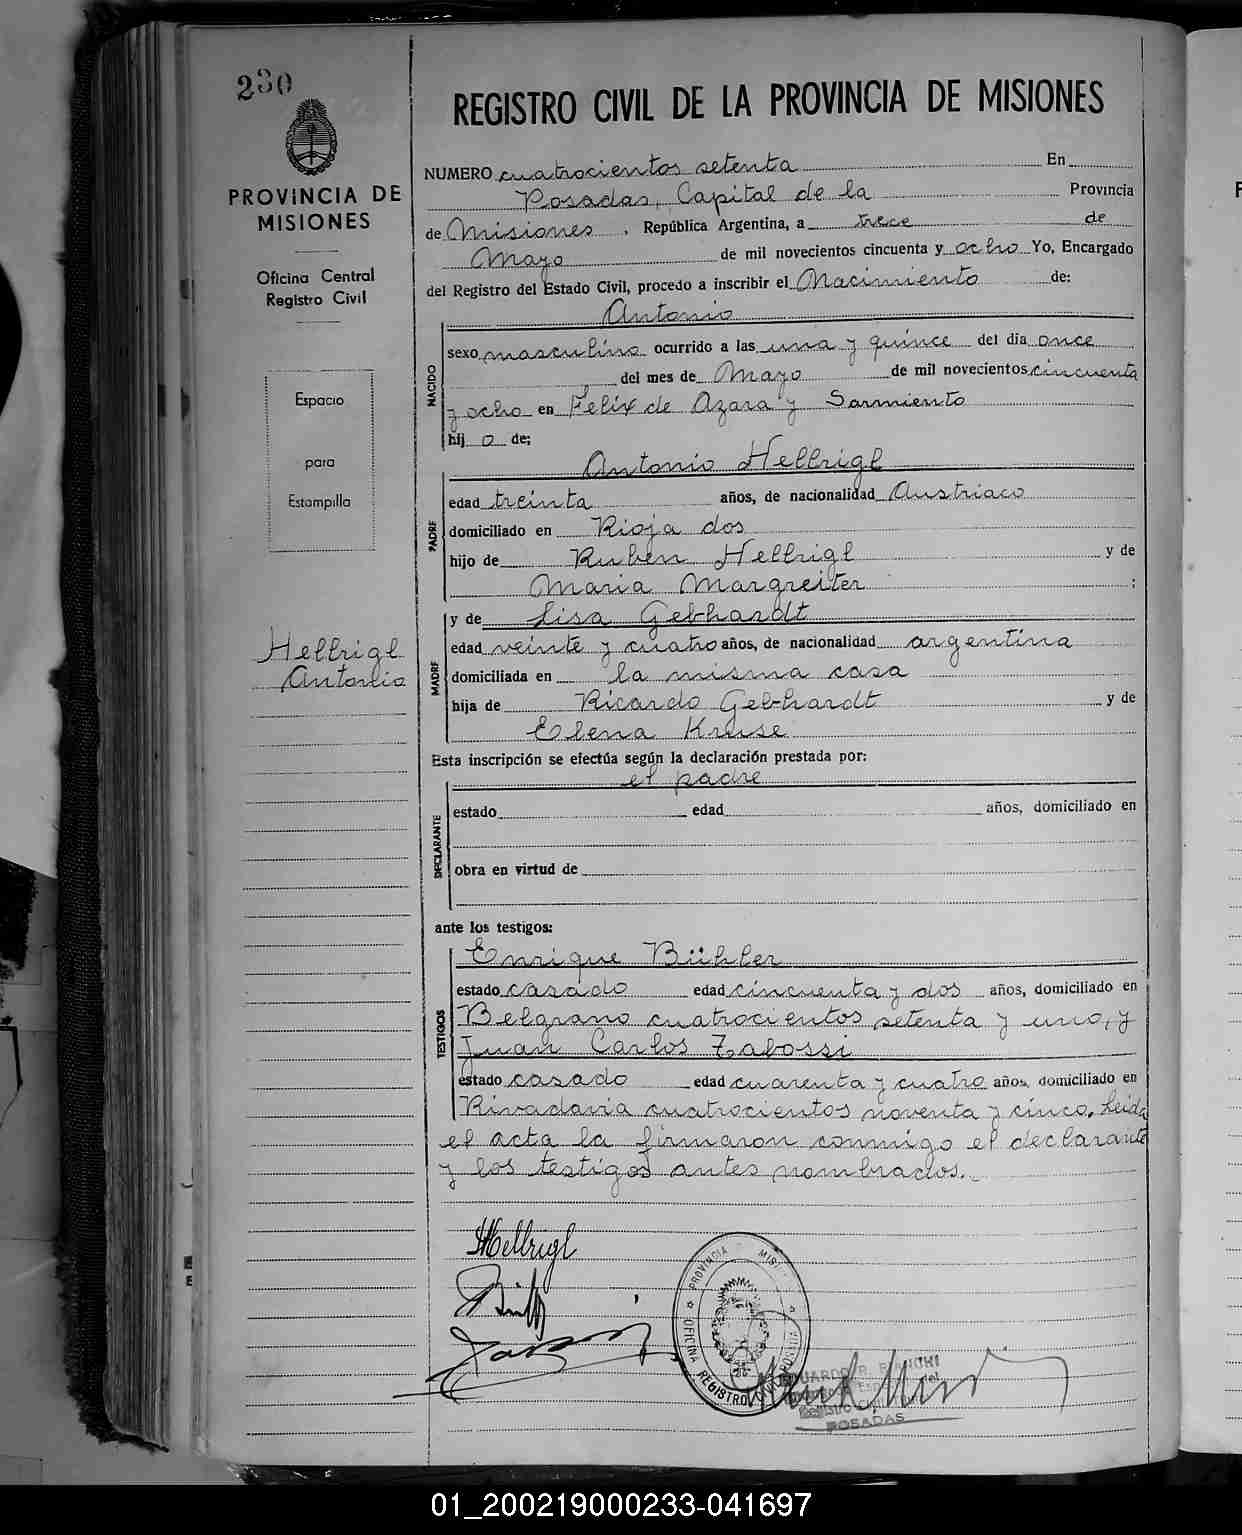 230
PROVINCIA DE
MISIONES
Oficina Central
Registro Civil
Espacio
para
Estampilla
Hellrigl
Antonio
REGISTRO CIVIL DE LA PROVINCIA DE MISIONES
NUMERO cuatrocientos setenta En
Posadas, Capital de la Provincia
de Misiones, República Argentina, a trece de
Mayo de mil novecientos cincuenta y ocho Yo, Encargado
del Registro del Estado Civil, procedo a inscribir el Nacimiento de:
Antonio
NACIDO
sexo masculino ocurrido a las una y quince del día once
del mes de Mayo de mil novecientos cincuenta
y ocho en Felíx de Azara y Sarmiento
hij o de:
Antonio Hellrigl
PADRE
edad treinta años, de nacionalidad Austriaco
domiciliado en Rioja dos
hijo de Ruben Hellrigl y de
Maria Margreiter ;
y de Lisa Gebhardt
MADRE
edad veinte y cuatro años, de nacionalidad argentina
domiciliada en la misma casa
hija de Ricardo Gebhardt y de
Elena Kruse
Esta inscripción se efectúa según la declaración prestada por:
el padre
DECLARANTE
estado edad años, domiciliado en
obra en virtud de
ante los testigos:
Enrique Bühler
TESTIGOS
estado casado edad cincuenta y dos años, domiciliado en
Belgrano cuatrocientos setenta y uno, y
Juan Carlos Zabossi
estado casado edad cuarenta y cuatro años, domiciliado en
Rivadavia cuatrocientos noventa y cinco. Leida
el acta la firmaron conmigo el declarante
y los testigos antes nombrados.
Hellrigl
PROVINCIA MISIONES
OFICINA REGISTRO CIVIL
POSADAS
01_200219000233-041697